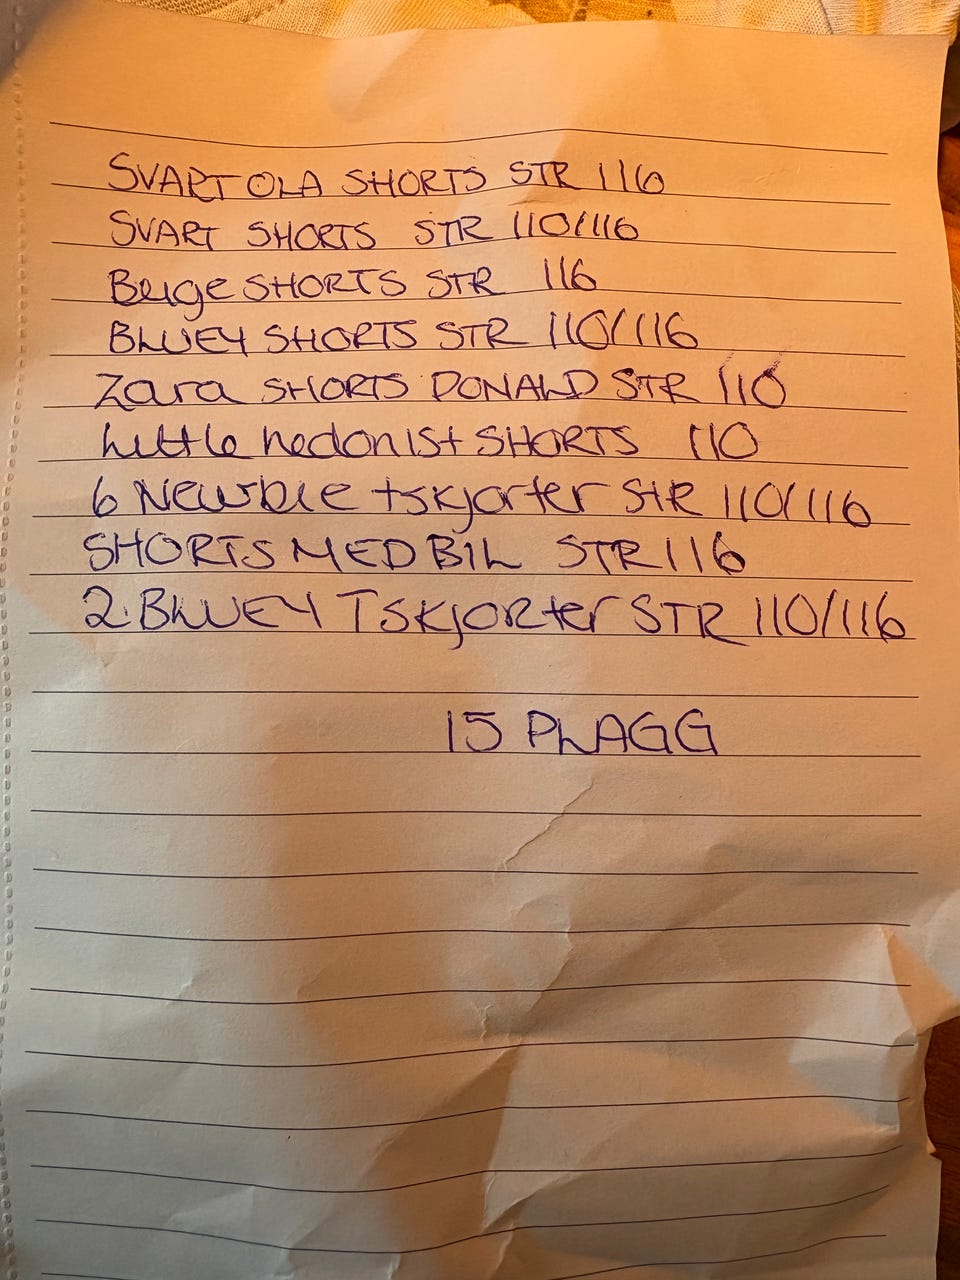 SVART OLA SHORTS STR 116
SVART SHORTS STR 110/116
Beige SHORTS STR 116
BLUEY SHORTS STR 110/116
Zara SHORTS DONALD STR 110
Little hedonist SHORTS 110
6 Newbie tskjorter StR 110/116
SHORTS MED BIL STR 116
2 BLUEY TSKjORter STR 110/116
15 PLAGG